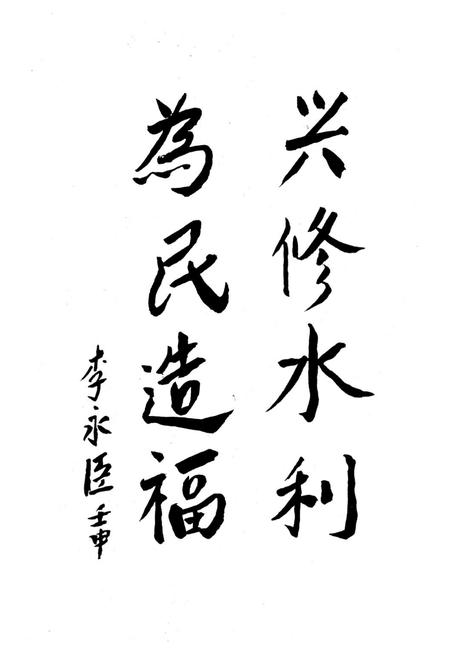 兴修水利
為民造福
李永臣壬申